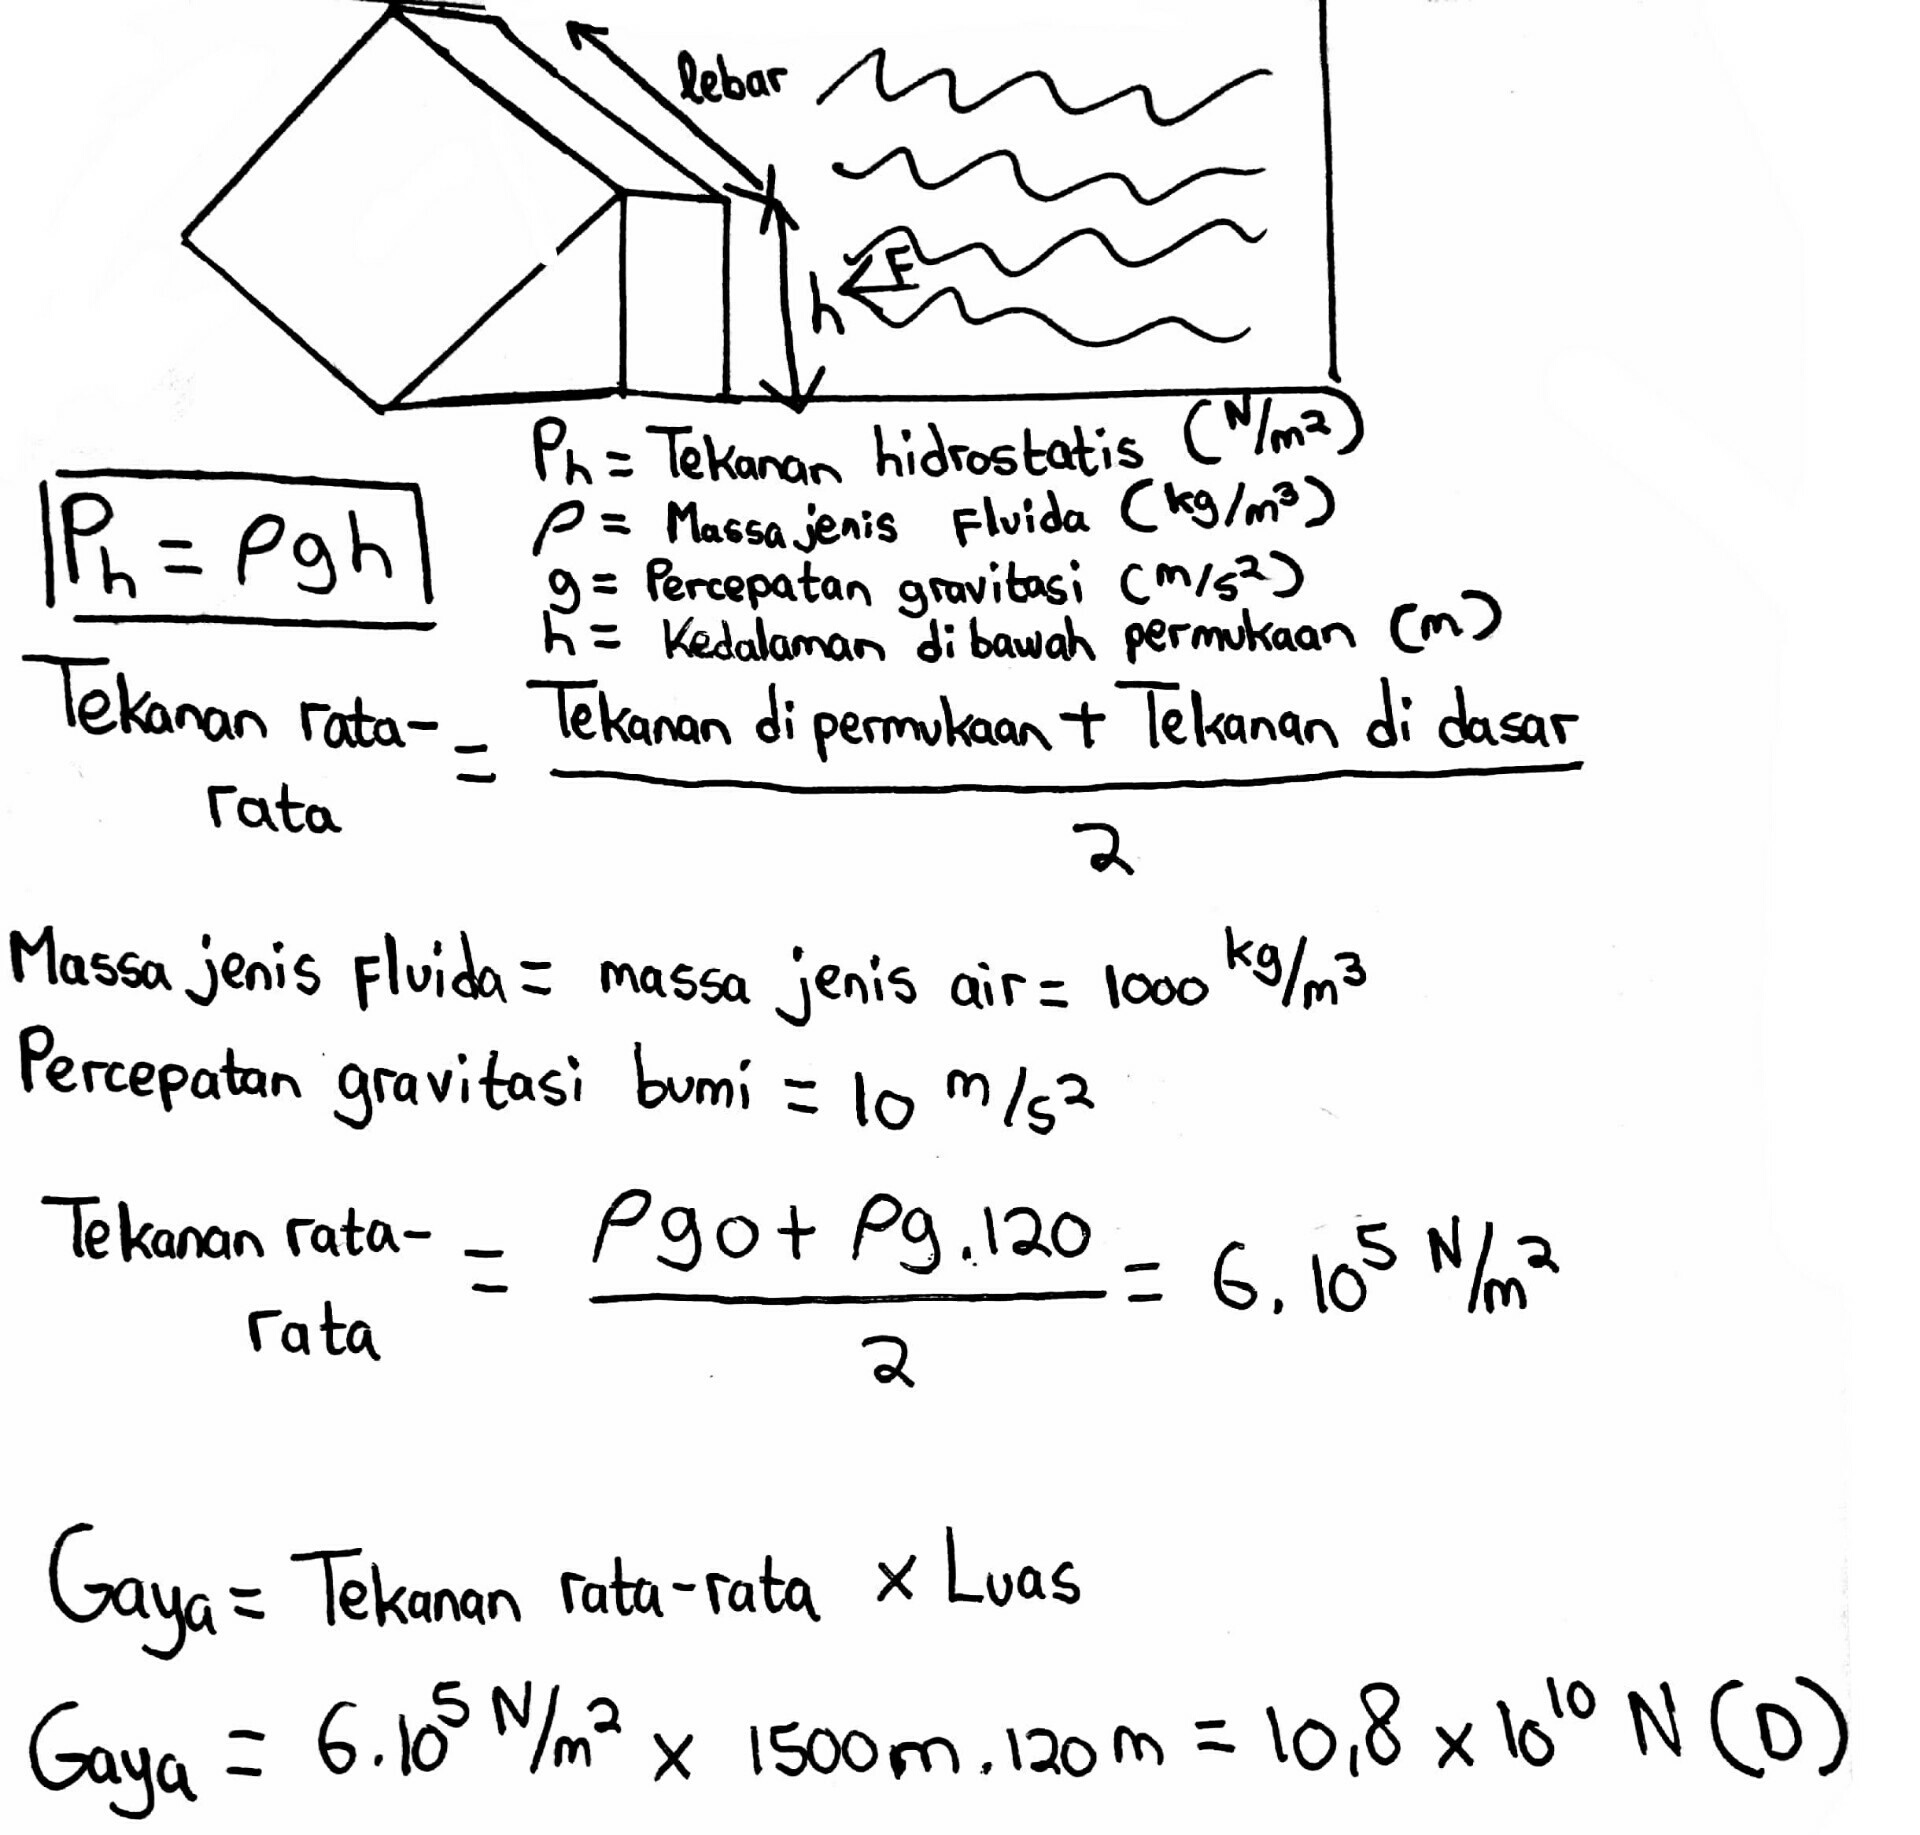 lebar
F
h
Ph = Tekanan hidrostatis (N/m²)
ρ = Massa jenis Fluida (kg/m³)
Ph = ρgh
g = Percepatan gravitasi (m/s²)
h = Kedalaman di bawah permukaan (m)
Tekanan rata- = Tekanan di permukaan + Tekanan di dasar
rata
2
Massa jenis Fluida = massa jenis air = 1000 kg/m³
Percepatan gravitasi bumi = 10 m/s²
Tekanan rata- = ρg0 + ρg.120 = 6.10⁵ N/m²
rata
2
Gaya = Tekanan rata-rata x Luas
Gaya = 6.10⁵ N/m² x 1500m.120m = 10,8 x 10¹⁰ N (D)